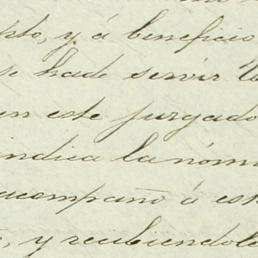 pto, y á beneficio
se hade servir V
en este jurgado
indica la nómi
acompaño á est
, y recibiendole